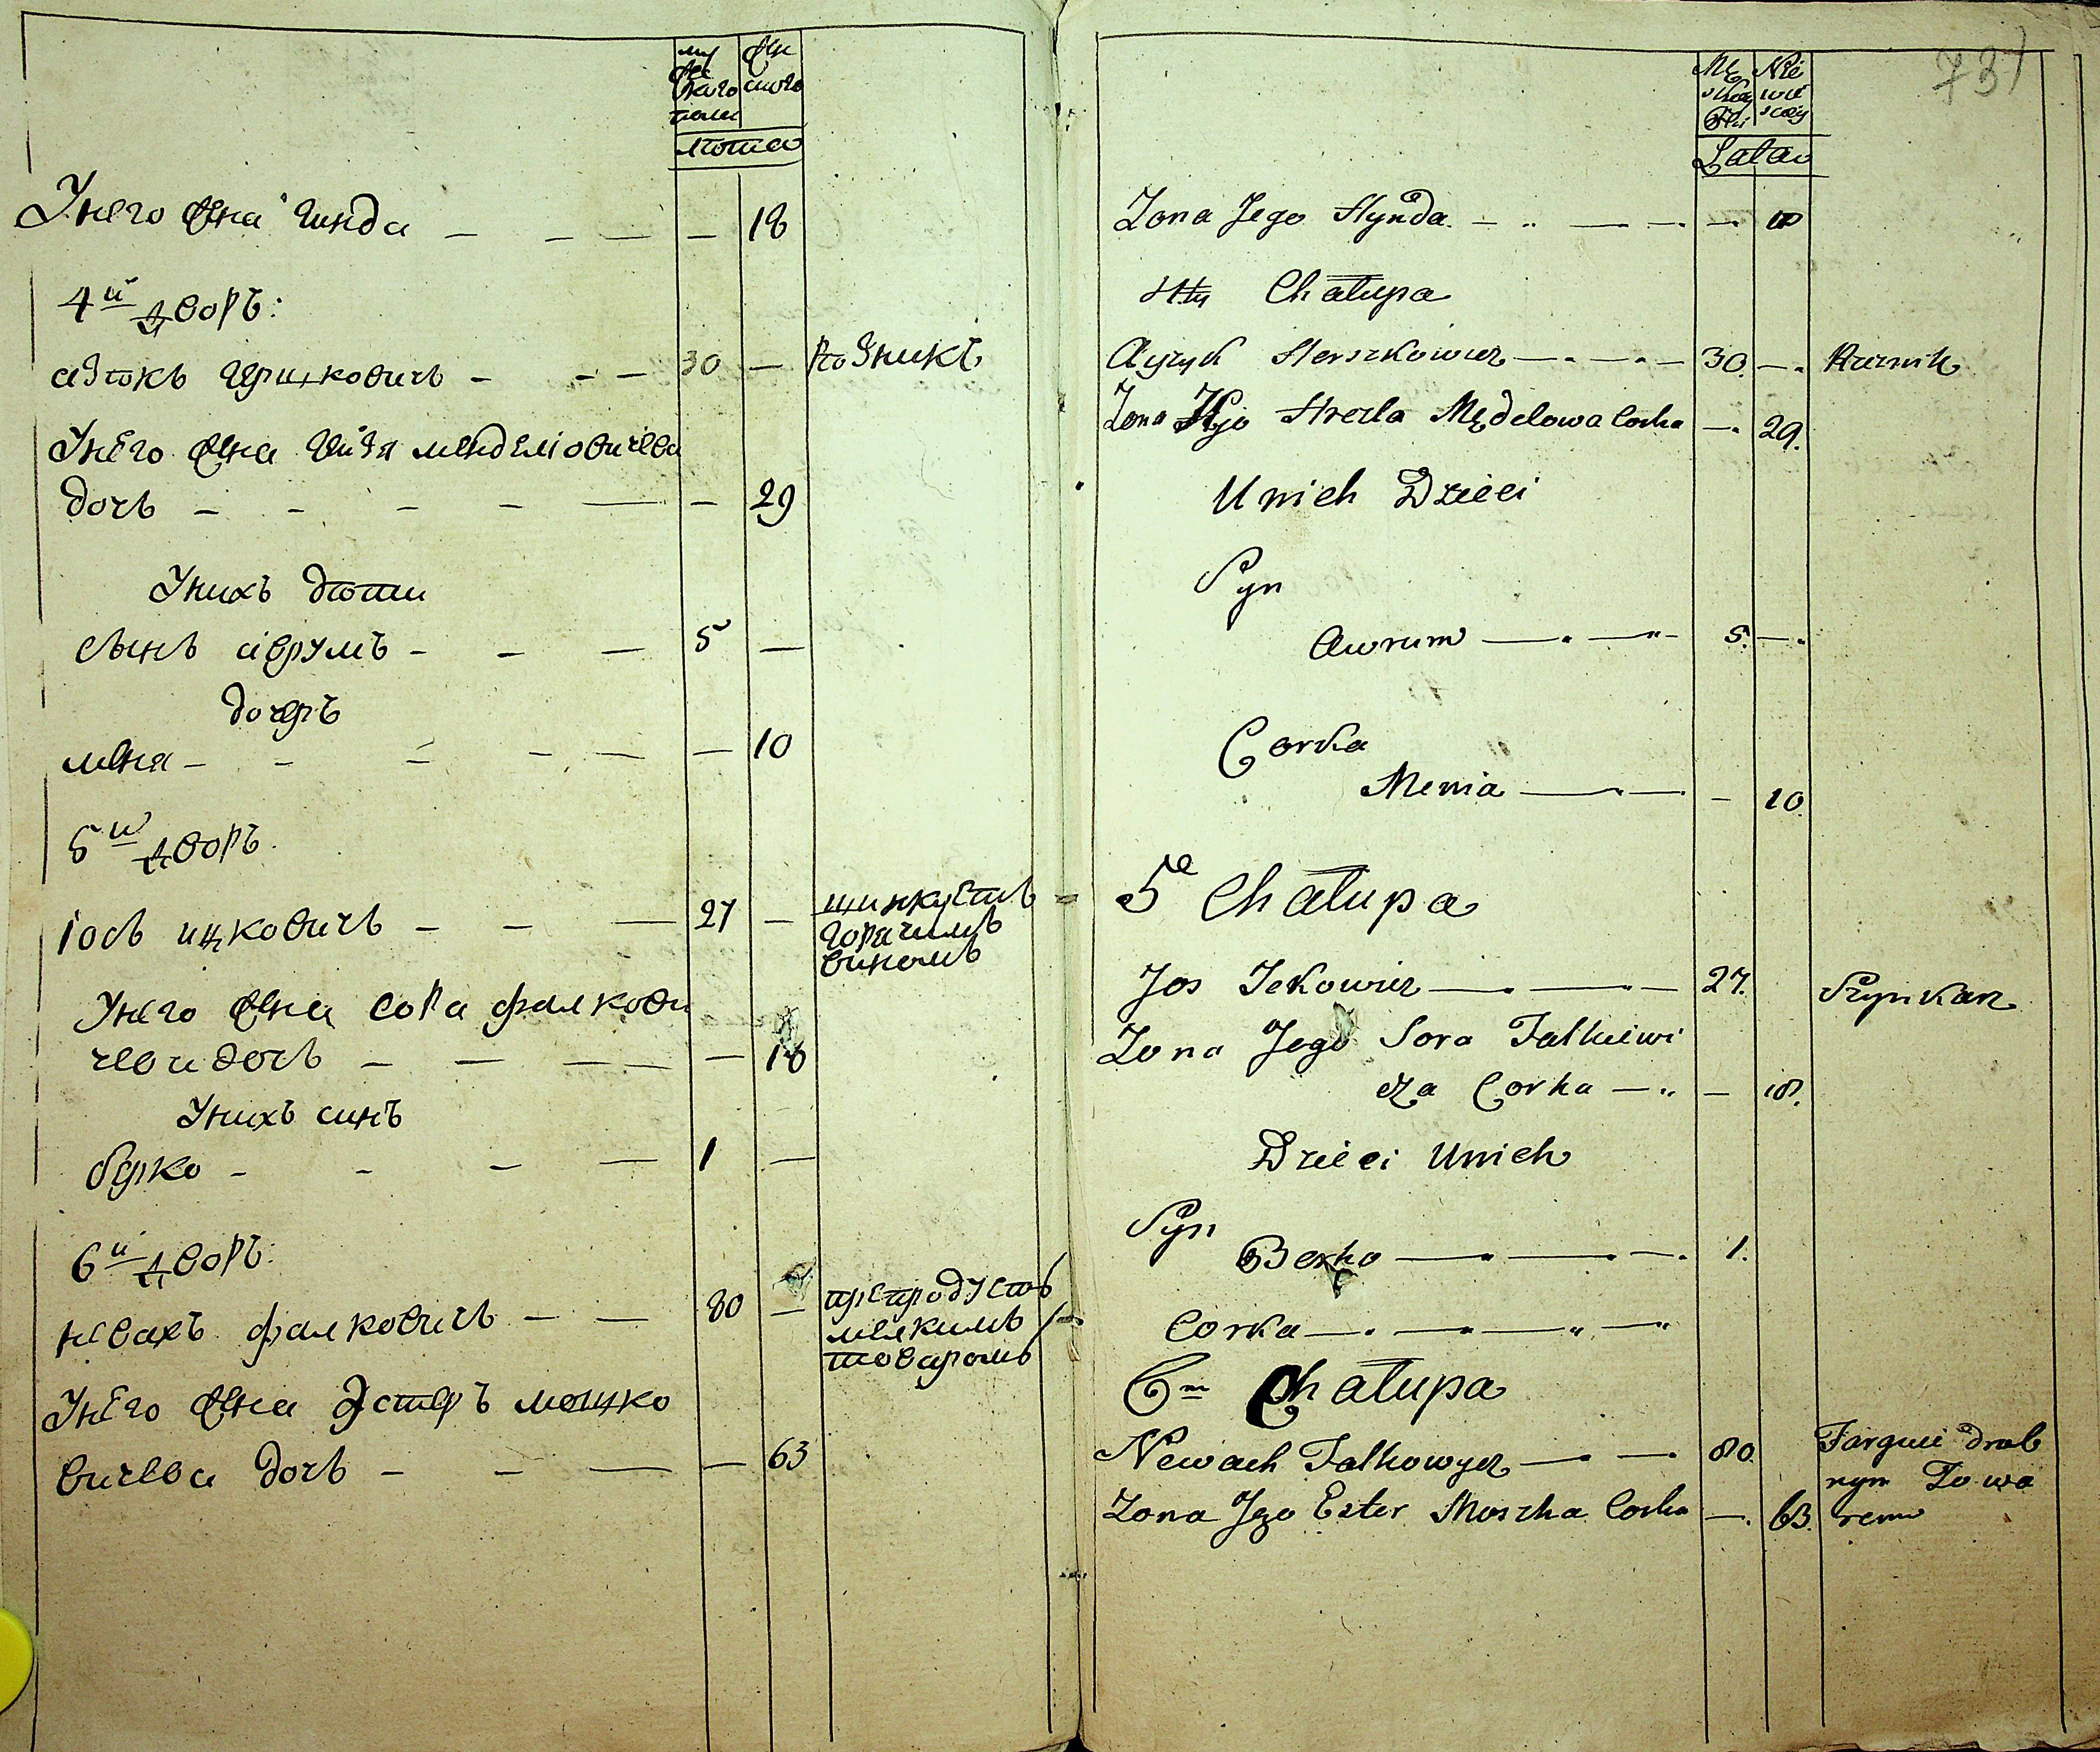 мужескаго полу
женскаго
лѣта
У него жена гинда — — — — 18
4й дворъ:
аизикъ гершковичъ — — — 30 — рѣзникъ
У него жена гитя менделіовичева
дочь — — — — — — 29
У нихъ дѣти
сынъ аврумъ — — — 5 —
дочерь
меня — — — — — — 10
5й дворъ
іось ицковичъ — — — 27 — шинкуетъ
горячимъ
виномъ
У него жена сора фалкови
чева дочь — — — — 18
У нихъ синъ
берко — — — — 1 —
6й дворъ:
невахъ фалковичъ — — 80 — препродуетъ
мелкимъ
товаромъ
У него жена Эстеръ мошко
вичева дочь — — — — 63
737
Męskiey Płci
Niewieściey
Lata
Zona Jego Hynda — — — — — 18
4ta Chałupa
Ayzyk Herszkowicz — — — 30. — Rzeznik
Zona Jego Mędelowa Corka — 29.
U nich Dzieci
Syn
Awrum — — 5. —
Corka
Menia — — — 10.
5e Chałupa
Jos Ickowicz — — — 27. Szynkarz
Zona Jego Sora Falkiewi
cza Corka — — 18.
Dzieci U nich
Syn
Berko — — — 1.
Corka — — — —
6m Chałupa
Newach Falkowycz — — 80. Targuie drob
nym Towa
Zona Jego Ester Moszka Corka — 63. rem